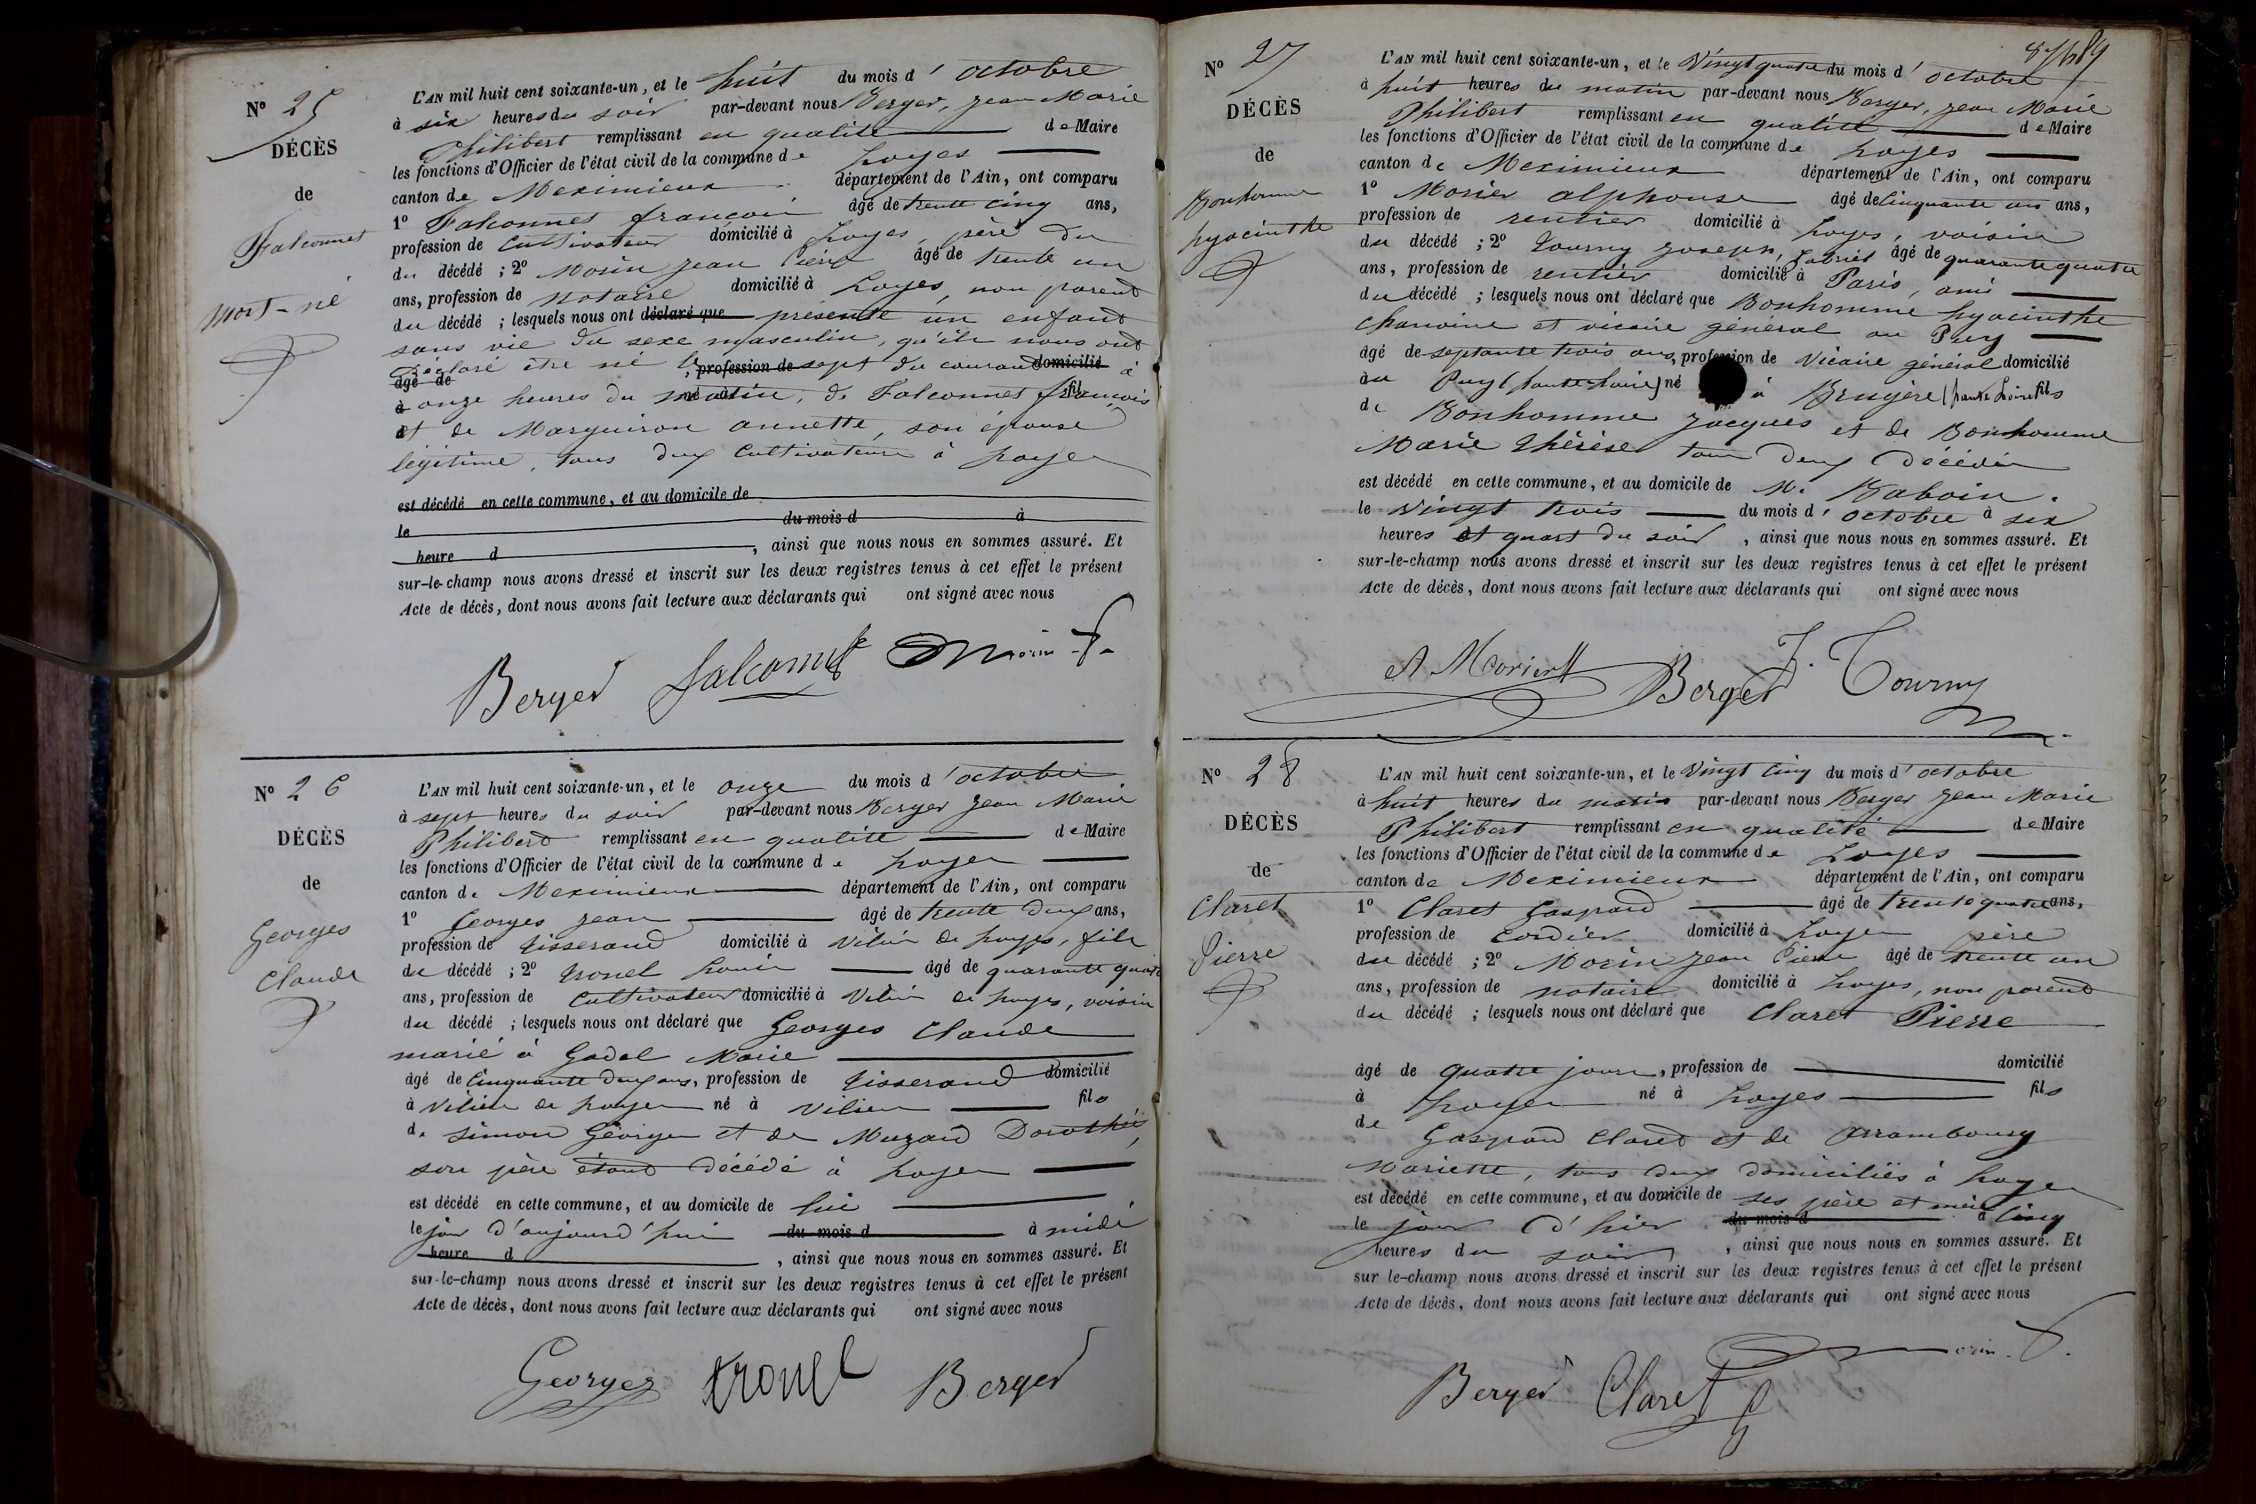 N° 25
DÉCÈS
de
Falconnet
mort-né
L'AN mil huit cent soixante-un, et le huit du mois d'octobre
à six heures du soir par-devant nous Berger, Jean Marie
Philibert remplissant en qualité de Maire
les fonctions d'Officier de l'état civil de la commune de Loyes
canton de Meximieux département de l'Ain, ont comparu
1° Falconnet françois âgé de trente cinq ans,
profession de Cultivateur domicilié à Loyes, père du
du décédé ; 2° Morin Jean Pierre âgé de trente un
ans, profession de notaire domicilié à Loyes, non parent
du décédé ; lesquels nous ont déclaré que présenté un enfant
sans vie du sexe masculin, qu'ils nous ont
déclaré être né le sept du courant à
âgé de , profession de domicilié
à onze heures du matin, de Falconnet françois
né à fil
et de Marguiron annette, son épouse
légitime, tous deux Cultivateurs à Loyes
est décédé en cette commune, et au domicile de
le du mois d à
heure d , ainsi que nous nous en sommes assuré. Et
sur-le-champ nous avons dressé et inscrit sur les deux registres tenus à cet effet le présent
Acte de décès, dont nous avons fait lecture aux déclarants qui ont signé avec nous
Berger falconnet Morin
N° 26
DÉCÈS
de
Georges
Claude
L'AN mil huit cent soixante-un, et le onze du mois d'octobre
à sept heures du soir par-devant nous Berger Jean Marie
Philibert remplissant en qualité de Maire
les fonctions d'Officier de l'état civil de la commune de Loyes
canton de Meximieux département de l'Ain, ont comparu
1° Georges Jean âgé de trente deux ans,
profession de tisserand domicilié à Vilieu de Loyes, fils
du décédé ; 2° tronel Louis âgé de quarante quatre
ans, profession de Cultivateur domicilié à Vilieu de Loyes, voisin
du décédé ; lesquels nous ont déclaré que Georges Claude
marié à Godel Marie
âgé de Cinquante deux ans, profession de tisserand domicilié
à Vilieu de Loyes né à Vilieu fils
de Simon Georges et de Muzard Dorothée,
son père étant décédé à Loyes
est décédé en cette commune, et au domicile de lui
le jour d'aujourd'hui du mois d à midi
heure d , ainsi que nous nous en sommes assuré. Et
sur-le-champ nous avons dressé et inscrit sur les deux registres tenus à cet effet le présent
Acte de décès, dont nous avons fait lecture aux déclarants qui ont signé avec nous
Georges tronel Berger
N° 27
DÉCÈS
de
Bonhomme
hyacinthe
L'AN mil huit cent soixante-un, et le Vingt quatre du mois d'octobre
à huit heures du matin par-devant nous Berger, Jean Marie
Philibert remplissant en qualité de Maire
les fonctions d'Officier de l'état civil de la commune de Loyes
canton de Meximieux département de l'Ain, ont comparu
1° Morier alphonse âgé de Cinquante un ans,
profession de rentier domicilié à Loyes, voisin
du décédé ; 2° Tourny Joseph, Gabriel âgé de quarante quatre
ans, profession de rentier domicilié à Paris, ami
du décédé ; lesquels nous ont déclaré que Bonhomme hyacinthe
Chanoine et vicaire général au Puy
âgé de septante trois ans, profession de Vicaire général domicilié
au Puy (haute Loire) né à Bruyère (haute Loire) fils
de Bonhomme Jacques et de Bonhomme
Marie thérèse tous deux Décédés
est décédé en cette commune, et au domicile de M. Baboin.
le Vingt trois du mois d'octobre à six
heures et quart du soir , ainsi que nous nous en sommes assuré. Et
sur-le-champ nous avons dressé et inscrit sur les deux registres tenus à cet effet le présent
Acte de décès, dont nous avons fait lecture aux déclarants qui ont signé avec nous
A Morier Berger J. Tourny
N° 28
DÉCÈS
de
Claret
Pierre
L'AN mil huit cent soixante-un, et le Vingt Cinq du mois d'octobre
à huit heures du matin par-devant nous Berger Jean Marie
Philibert remplissant en qualité de Maire
les fonctions d'Officier de l'état civil de la commune de Loyes
canton de Meximieux département de l'Ain, ont comparu
1° Claret Gaspard âgé de trente quatre ans,
profession de cordier domicilié à Loyes père
du décédé ; 2° Morin Jean Pierre âgé de trente un
ans, profession de notaire domicilié à Loyes, non parent
du décédé ; lesquels nous ont déclaré que Claret Pierre
âgé de quatre jours, profession de domicilié
à Loyes né à Loyes fils
de Gaspard Claret et de Arrambourg
Mariette, tous deux domiciliés à Loyes
est décédé en cette commune, et au domicile de ses père et mère
le jour d'hier du mois d à Cinq
heures du soir , ainsi que nous nous en sommes assuré. Et
sur le-champ nous avons dressé et inscrit sur les deux registres tenus à cet effet le présent
Acte de décès, dont nous avons fait lecture aux déclarants qui ont signé avec nous
Berger Claret Morin